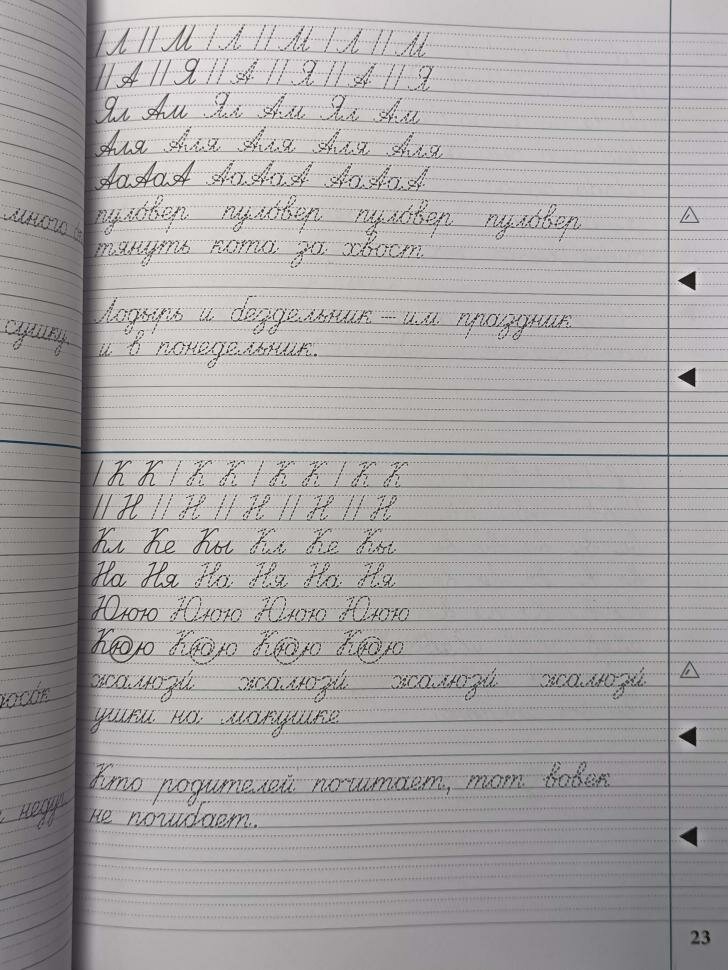 / Л // М / Л // М / Л // М
// А // Я // А // Я // А // Я
Ял Ам Ял Ам Ял Ам
Аля Аля Аля Аля Аля
АаАаА АаАаА АаАаА
много
пуло́вер пуло́вер пуло́вер пуло́вер
тянуть кота за хвост
Лодырь и бездельник – им праздник
сушку.
и в понедельник.
/ К К / К К / К К / К К
// Н // Н // Н // Н // Н
Кл Ке Кы Кл Ке Кы
На Ня На Ня На Ня
Ююю Ююю Ююю Ююю
Кюю Кюю Кюю Кюю
жалюзи́ жалюзи́ жалюзи́ жалюзи́
ушки на макушке
Кто родителей почитает, тот вовек
не погибает.
23